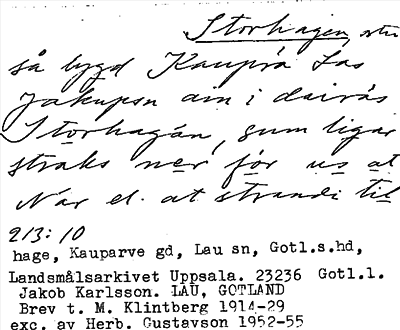 Storhagen, stu
så bygd Kaupra Las
Jakupsn ain i dairäs
Storhagán, sum ligar
straks ner för us at
Nar el. at strandi til
213:10
hage, Kauparve gd, Lau sn, Gotl.s.hd,
Landsmålsarkivet Uppsala. 23236 Gotl.l.
Jakob Karlsson. LAU, GOTLAND
Brev t. M. Klintberg 1914-29
exc. av Herb. Gustavson 1952-55